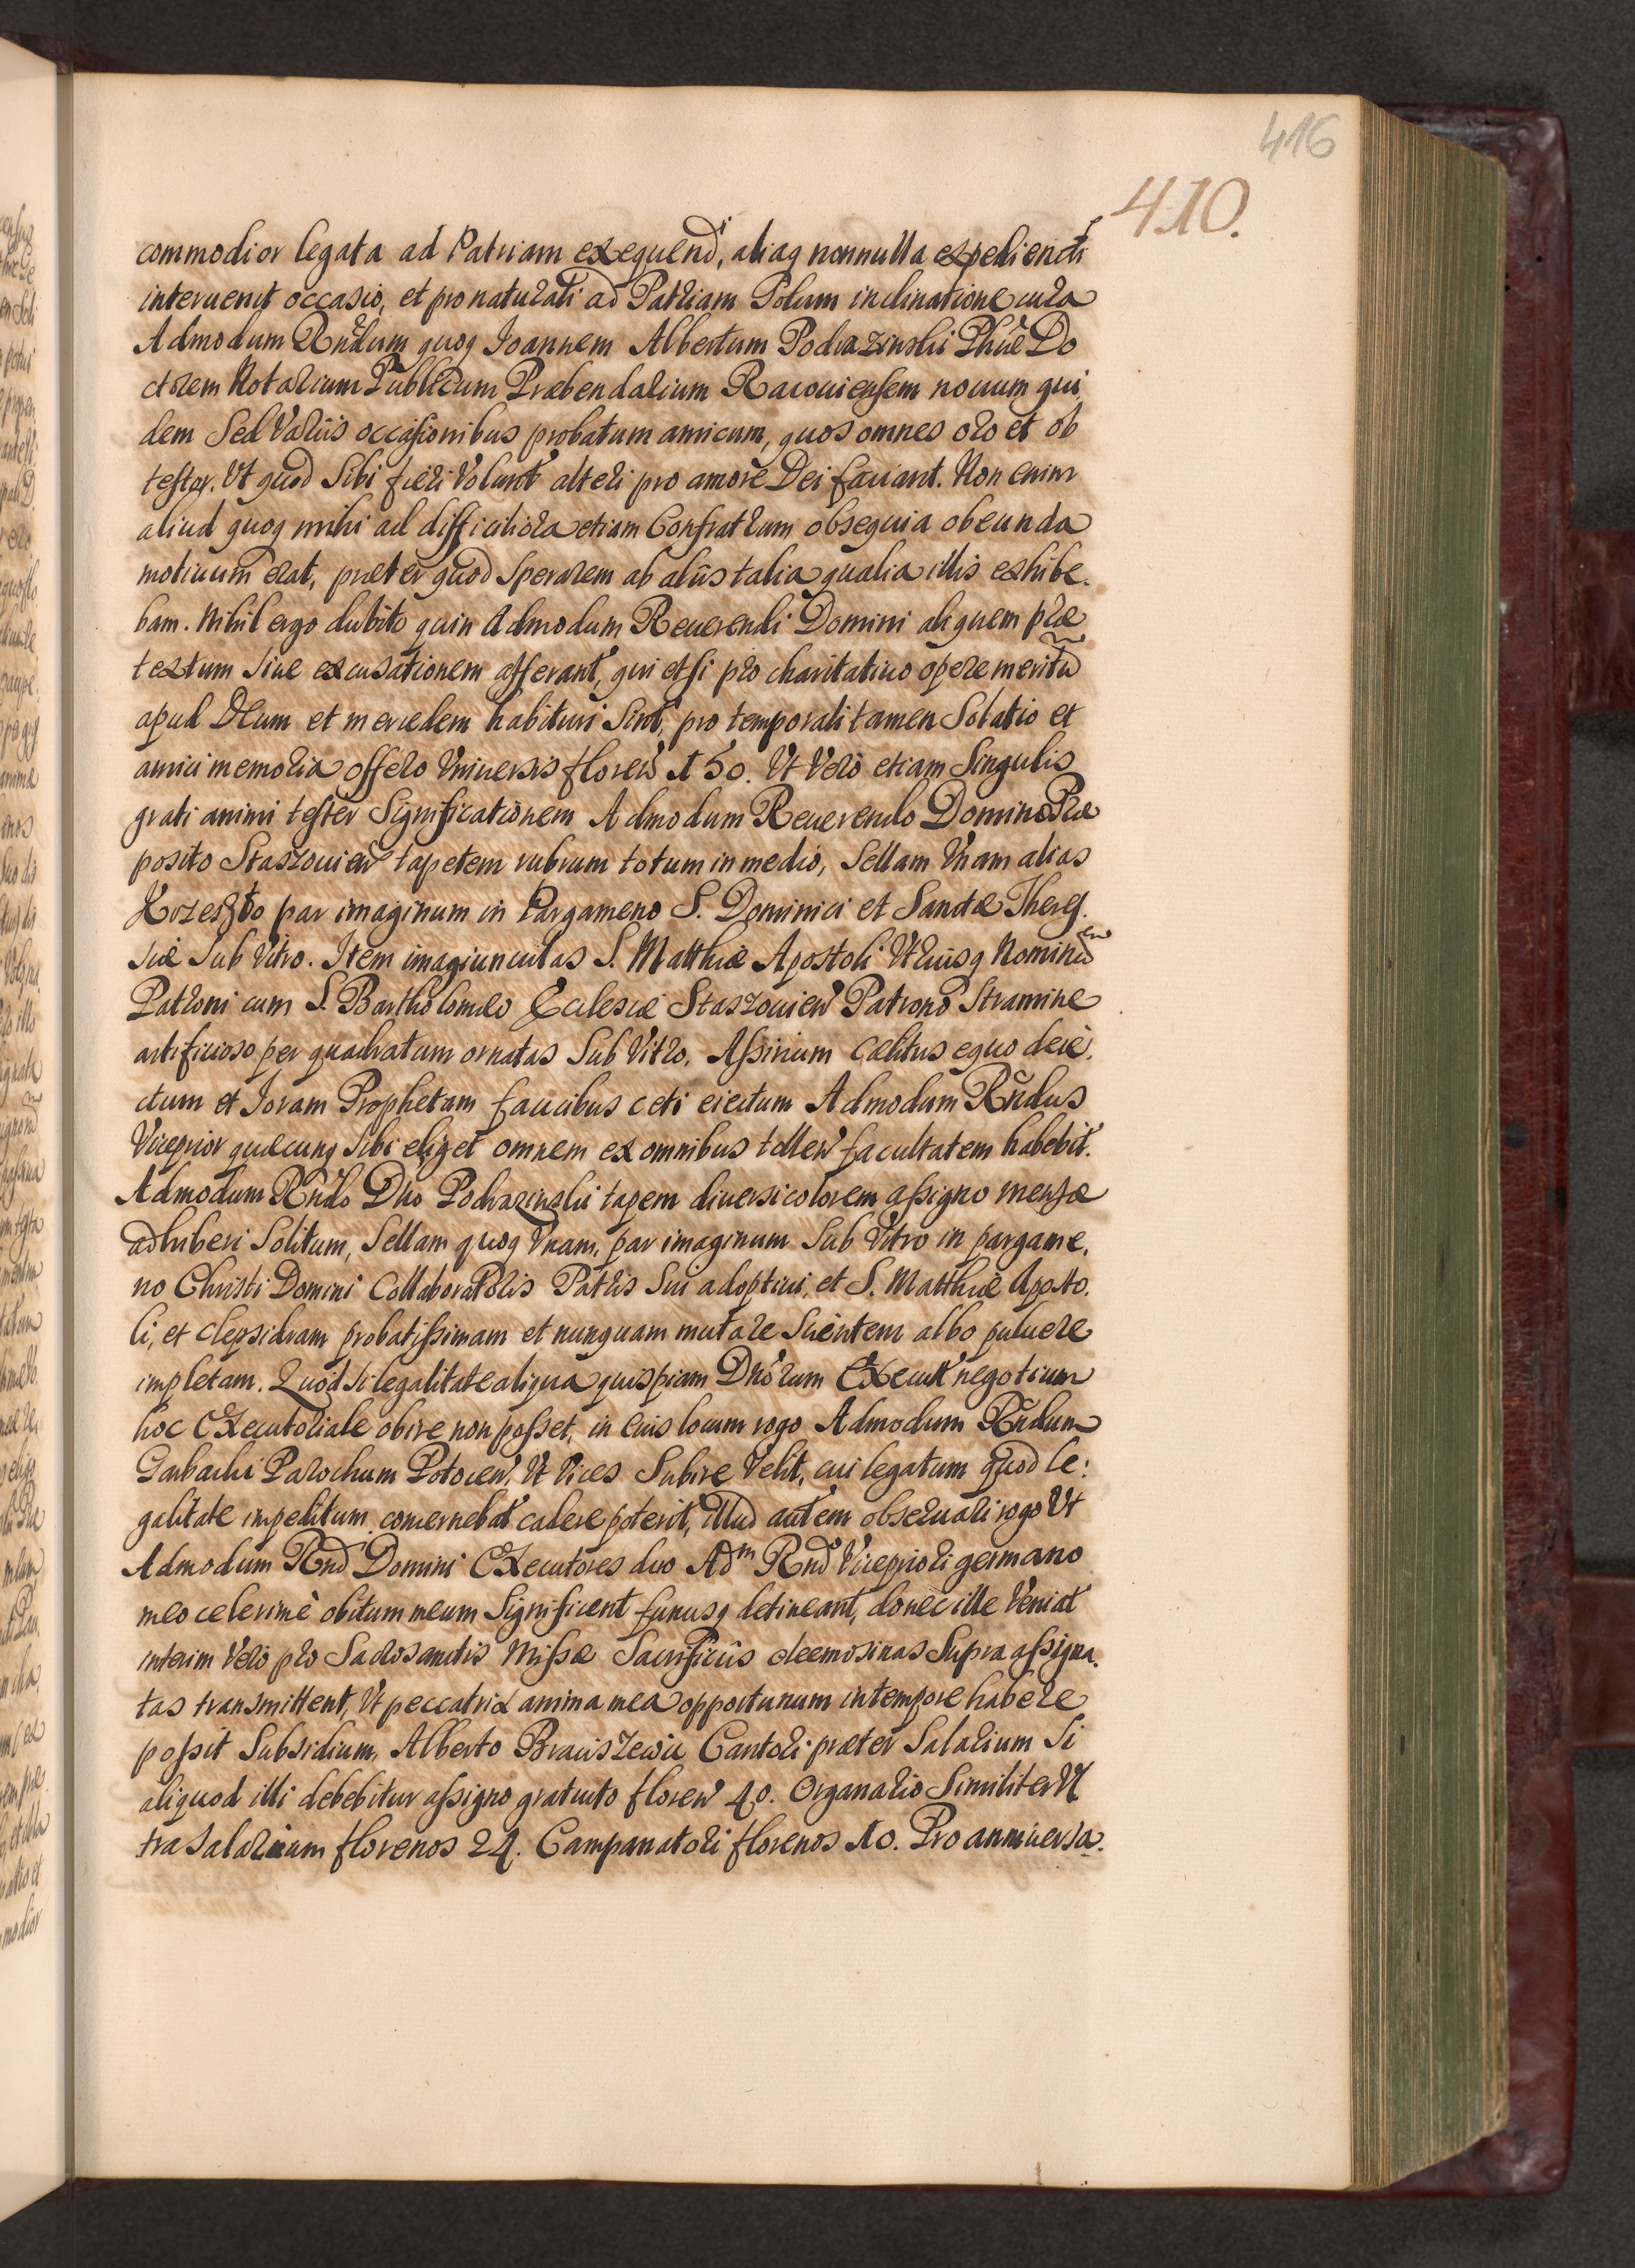 416
410.
commodior legata ad Patriam exequend', aliaq nonnulla expediendi
interuenit occasio, et pro naturali ad Patriam Polum inclinatione cura
Admodum Rndum quoq Joannem Albertum Podrazinski Phiæ Do
ctorem Notarium Publicum Præbendarium Racouiensem nouum qui
dem Sed Variis occasionibus probatum amicum, quos omnes oro et ob
testor. Vt quod Sibi fieri Volunt alteri pro amore Dei faciant. Non enim
aliud quoq mihi ad difficiliora etiam Confratrum obsequia obeunda
motiuum erat, præter quod Sperarem ab aliis talia qualia illis exhibe.
bam. Nihil ergo dubito quin Admodum Reuerendi Domini aliquem præ
textum Siue excusationem afferant, qui etsi pro charitatiuo opere meritu
apud Deum et mercedem habituri Sint, pro temporali tamen Solatio et
amici memoria offero Vniuersis floren 150. Vt Vero etiam Singulis
grati animi tester Significationem Admodum Reuerendo Domino Præ
posito Staszouien tapetem rubrum totum in medio, Sellam Vnam alias
Krzeszło par imaginum in Pargameno S. Dominici et Sanctæ Theres.
siæ Sub Vitro. Item imaguinculas S. Matthiæ Apostoli Vtriusq Nomin
Patroni cum S. Bartholomeo Ecclesiæ Staszouien Patrono Stramine
artificioso per quadratum ornatas Sub Vitro. Assirium Cælitus equo deie.
ctum et Jonam Prophetam faucibus ceti eiectum Admodum Rndus
Viceprior quæcunq Sibi eliget omnem ex omnibus tollen facultatem habebit.
Admodum Rndo Dno Podrazinski tapem diuersicolorem assigno mensæ
adhiberi Solitum, Sellam quoq Vnam, par imaginum Sub Vitro in pargame.
no Christi Domini Collaboratoris Patris Sui adoptiui, et S. Matthiæ Aposto.
li, et clepsidram probatissimam et nunquam mutare Scientem albo puluere
impletam. Quod si legalitate aliqua quispiam Dnorum Execut negotium
hoc Executoriale obire non posset, in eius locum rogo Admodum Rndum
Garbacki Parochum Potocen, Vt Vices Subire Velit, cui legatum quod le:
galitate impeditum concernebat cedere poterit, illud autem obseruari rogo Vt
Admodum Rnd Domini Executores duo Adm Rnd Vicepriori germano
meo celerimè obitum meum Significent funusq detineant, donec ille Veniat
interim Vero pro Sacrosanctis Missæ Sacrificiis eleemosinas Supra assigna.
tas transmittent, Vt peccatrix anima mea opportunum in tempore habere
possit Subsidium, Alberto Braciszewic Cantori præter Salarium Si
aliquod illi debebitur assigno gratuito floren 40. Organario Similiter Vl
tra Salarium florenos 24. Campanatori florenos 10. Pro anniuersa.